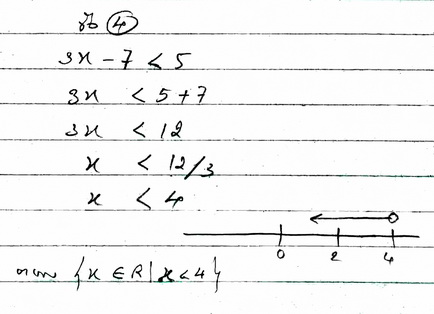 ข้อ ④
3x - 7 < 5
3x < 5 + 7
3x < 12
x < 12/3
x < 4
0 2 4
ตอบ {x ∈ R | x < 4}